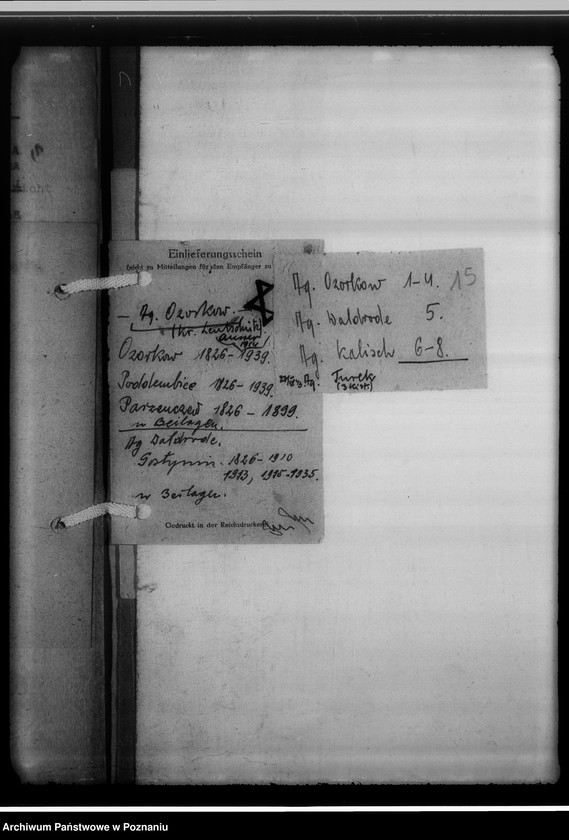 Einlieferungsschein
(nicht zu Mitteilungen für den Empfänger zu
– Ag. Ozorkow. –
(Kr. Lentschütz)
1912!
Ozorkow 1826–1939.
Poddembice 1826–1939.
Parzenczew 1826–1899.
u Beilagen.
Ag Waldrode.
Gostynin. 1826–1910
1913, 1915–1935.
u Beilagen.
Gedruckt in der Reichsdruckerei
Ag. Ozorkow 1–4. 15
Ag. Waldrode 5.
Ag. Kalisch 6–8.
Ag. Turek
(3 Kist.)
Archiwum Państwowe w Poznaniu